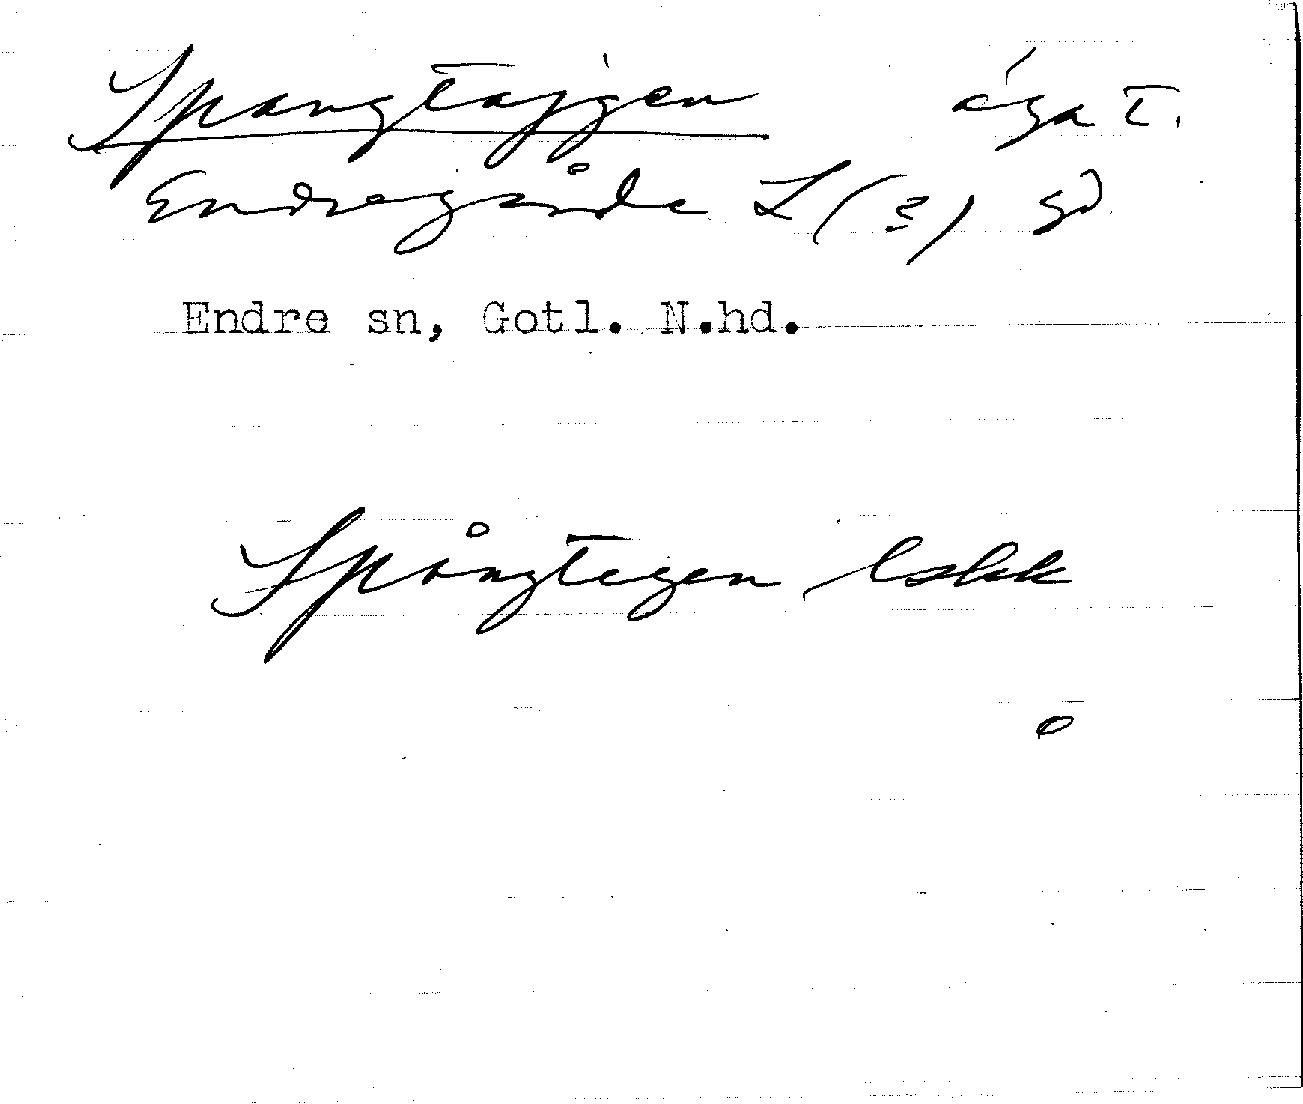 Spangtajgen äga t.
Endregårde L (3) gd
Endre sn, Gotl. N.hd.
Spångtegen